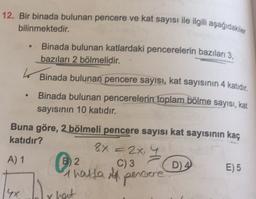 12. Bir binada bulunan pencere ve kat sayısı ile ilgili aşağıdakiler
bilinmektedir.
• Binada bulunan katlardaki pencerelerin bazıları 3,
bazıları 2 bölmelidir.
Binada bulunan pencere sayısı, kat sayısının 4 katıdır.
• Binada bulunan pencerelerin toplam bölme sayısı, kat
sayısının 10 katıdır.
Buna göre, 2 bölmeli pencere sayısı kat sayısının kaç
katıdır?
8x = 2x, 4
A) 1 B) 2 C) 3 D) 4 E) 5
pencere
4x